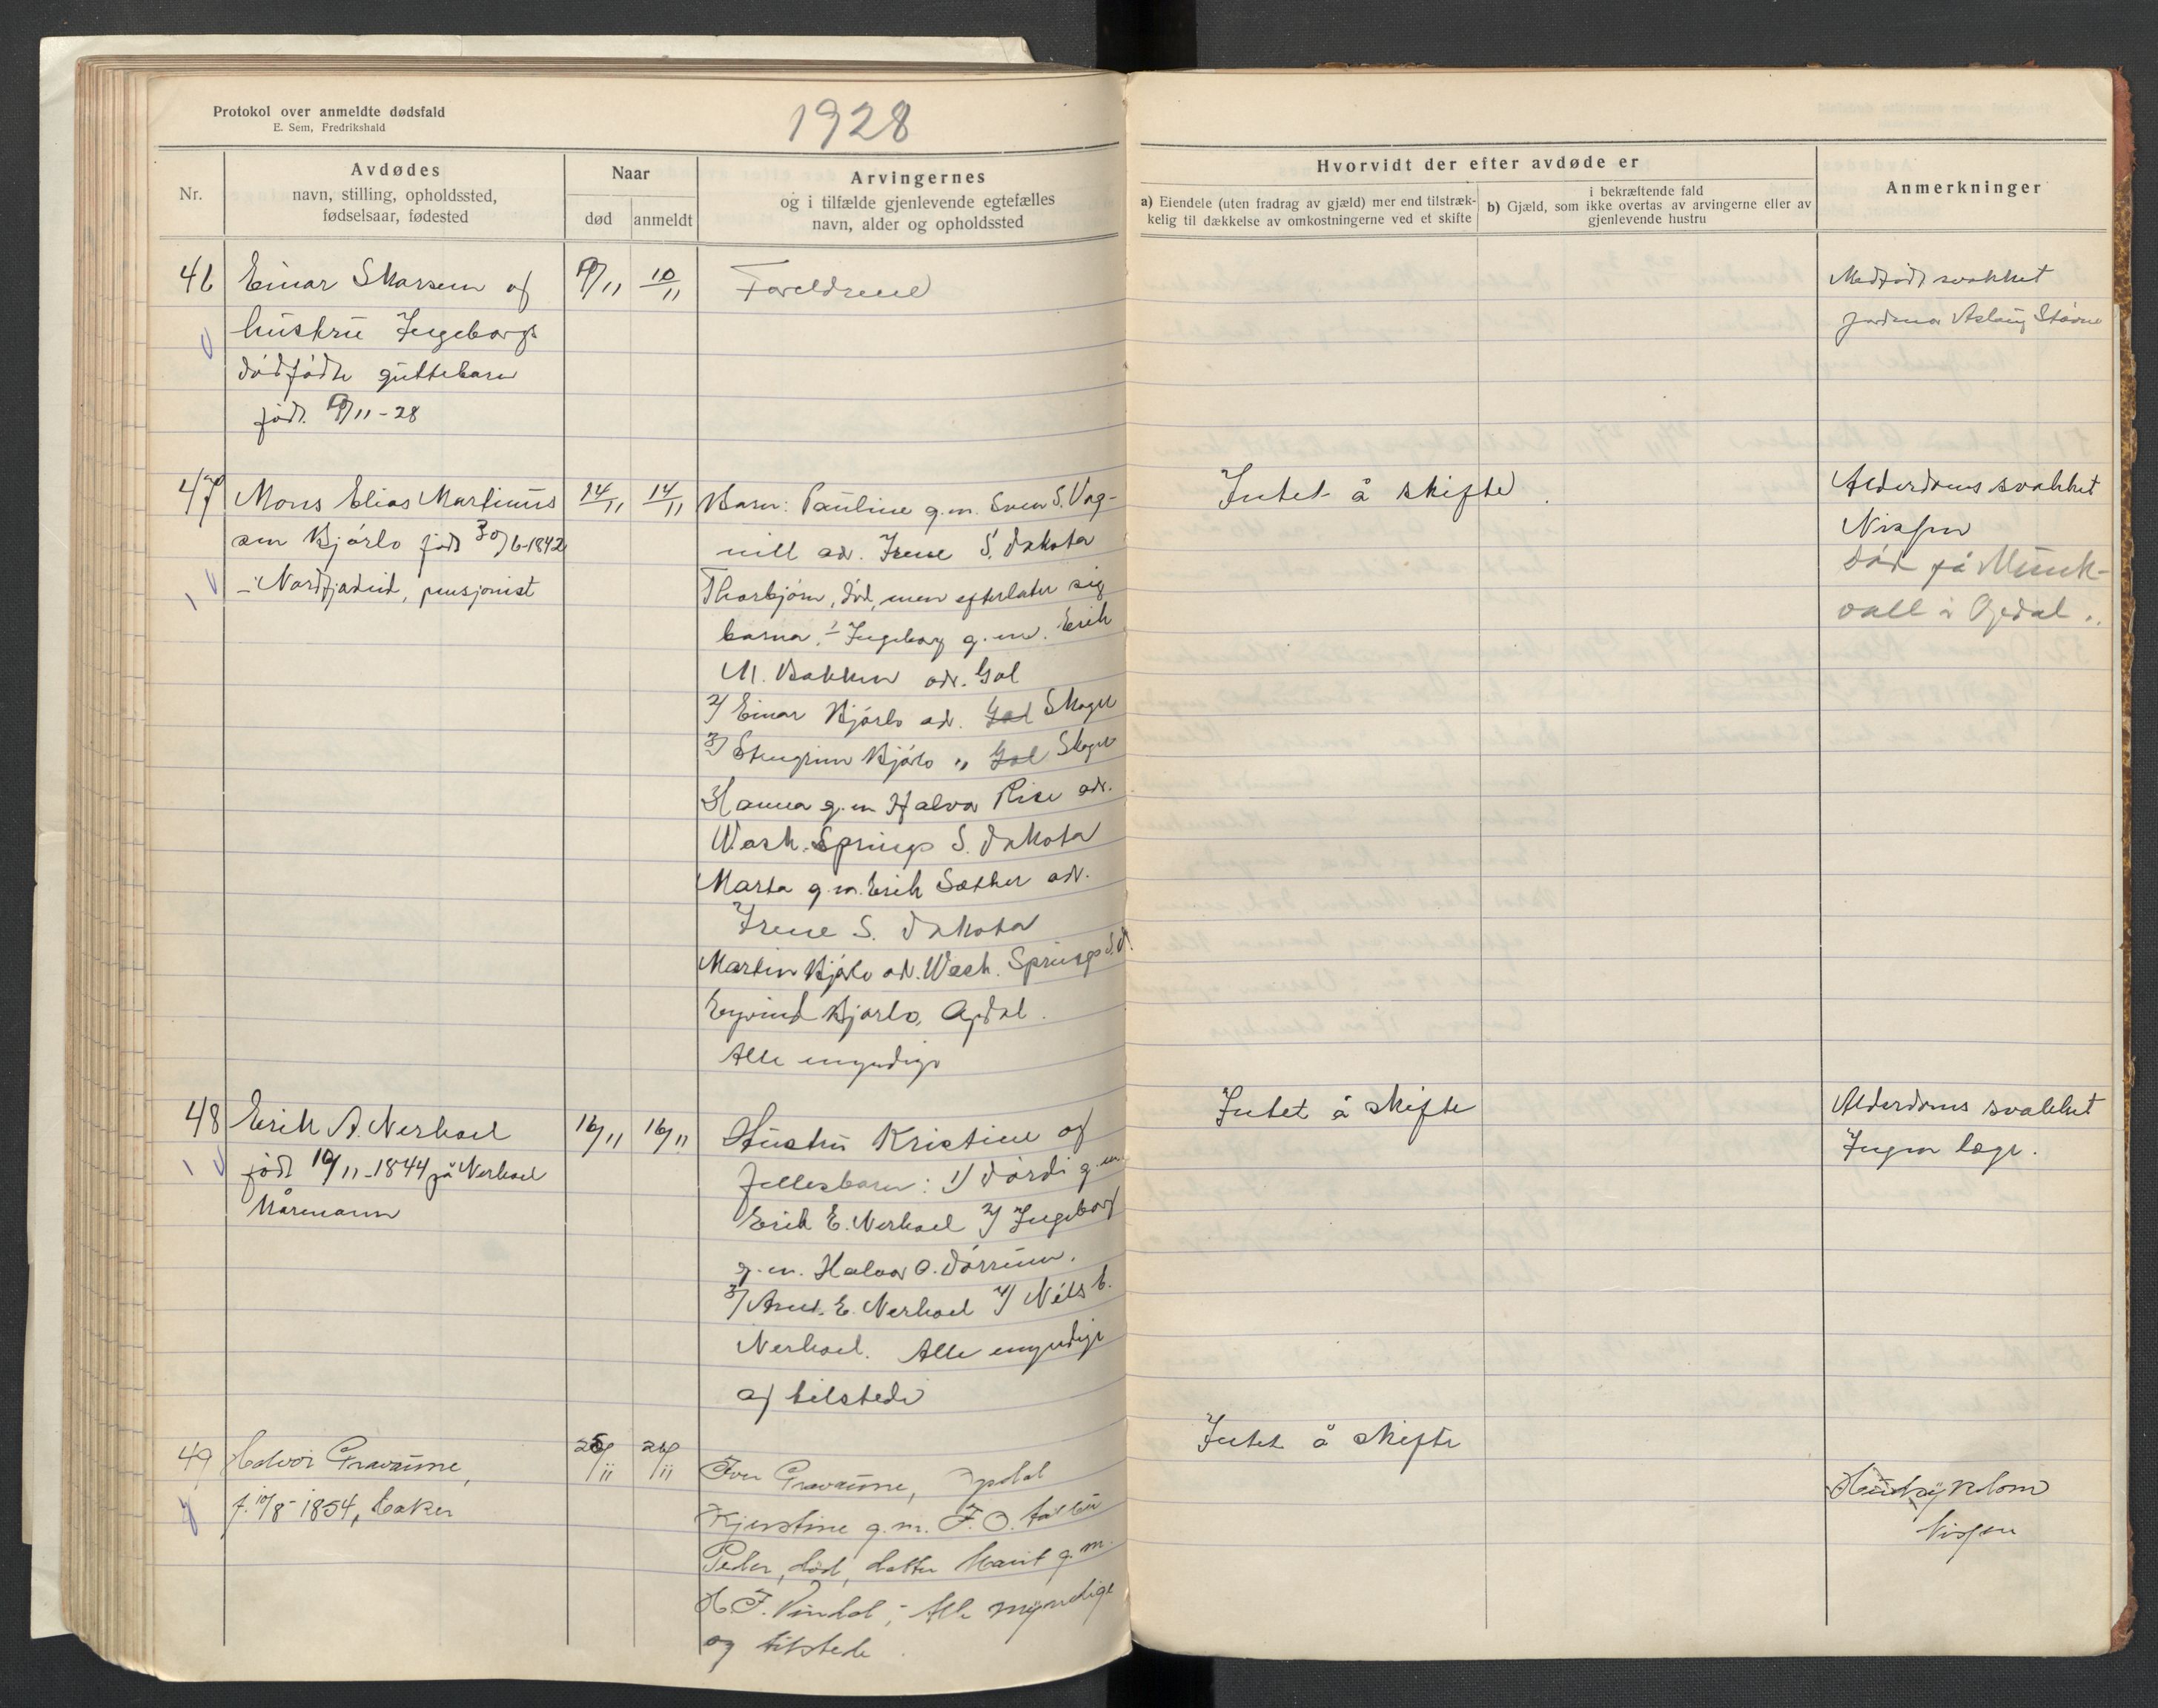 Protokol over anmeldte dødsfald
E. Sem, Fredrikshald
1928
Nr.
Avdødes
navn, stilling, opholdssted,
fødselsaar, fødested
Naar
død
anmeldt
Arvingernes
og i tilfælde gjenlevende egtefælles
navn, alder og opholdssted
Hvorvidt der efter avdøde er
a) Eiendele (uten fradrag av gjæld) mer end tilstræk-
kelig til dækkelse av omkostningerne ved et skifte
i bekræftende fald
b) Gjæld, som ikke overtas av arvingerne eller av
gjenlevende hustru
Anmerkninger
46 Einar Skarsem og
hustru Ingeborgs
dødfødte guttebarn
født /11-28
/11
10/11
Foreldrene
Medfødt svakhet
jordmor Aslaug Støvne
47 Mons Elias Martinus
sen Bjørlo født 30/6-1842
i Nordfjordeid, pensjonist
14/11
14/11
Barn: Pauline g.m. Sven S. Vog-
nill adr. Irene S. Dakota
Thorbjørn, død, men efterlater sig
barna: 1/ Ingeborg g.m. Erik
M. Bakken adr. Gol
2/ Einar Bjørlo adr. Gol Skoger
3/ Stengrim Bjørlo " Gol Skoger
Hanna g.m Halvor Rise adr.
Wesh. Springs S. Dakota
Marta g.m. Erik Sæther adr.
Irene S. Dakota
Martin Bjørlo adr. Wesh. Springs S.D.
Eyvind Bjørlo, Opdal.
Alle myndige
Intet å skifte
Alderdoms svakhet
Nissen
død på Munk-
voll i Opdal.
48 Erik A. Nerhoel
født 10/11-1844 på Nerhoel
kårmann
16/11
16/11
Hustru Kristine og
fellesbarn: 1/ Dordi g.m.
Erik E. Nerhoel 2/ Ingeborg
g.m. Halvor O. Dørrum.
3/ Arnt E. Nerhoel 4/ Nils E.
Nerhoel. Alle myndige
og tilstede
Intet å skifte
Alderdoms svakhet
Ingen læge.
49 Halvor Gravaune,
f. 10/8-1854, baker
25/11
26/11
Iver Gravaune, Opdal
Kjerstine g.m. F. O.
Peder, død, datter Marit g.m.
H. F. Vindal; Alle myndige
og tilstede.
Intet å skifte
Nissen